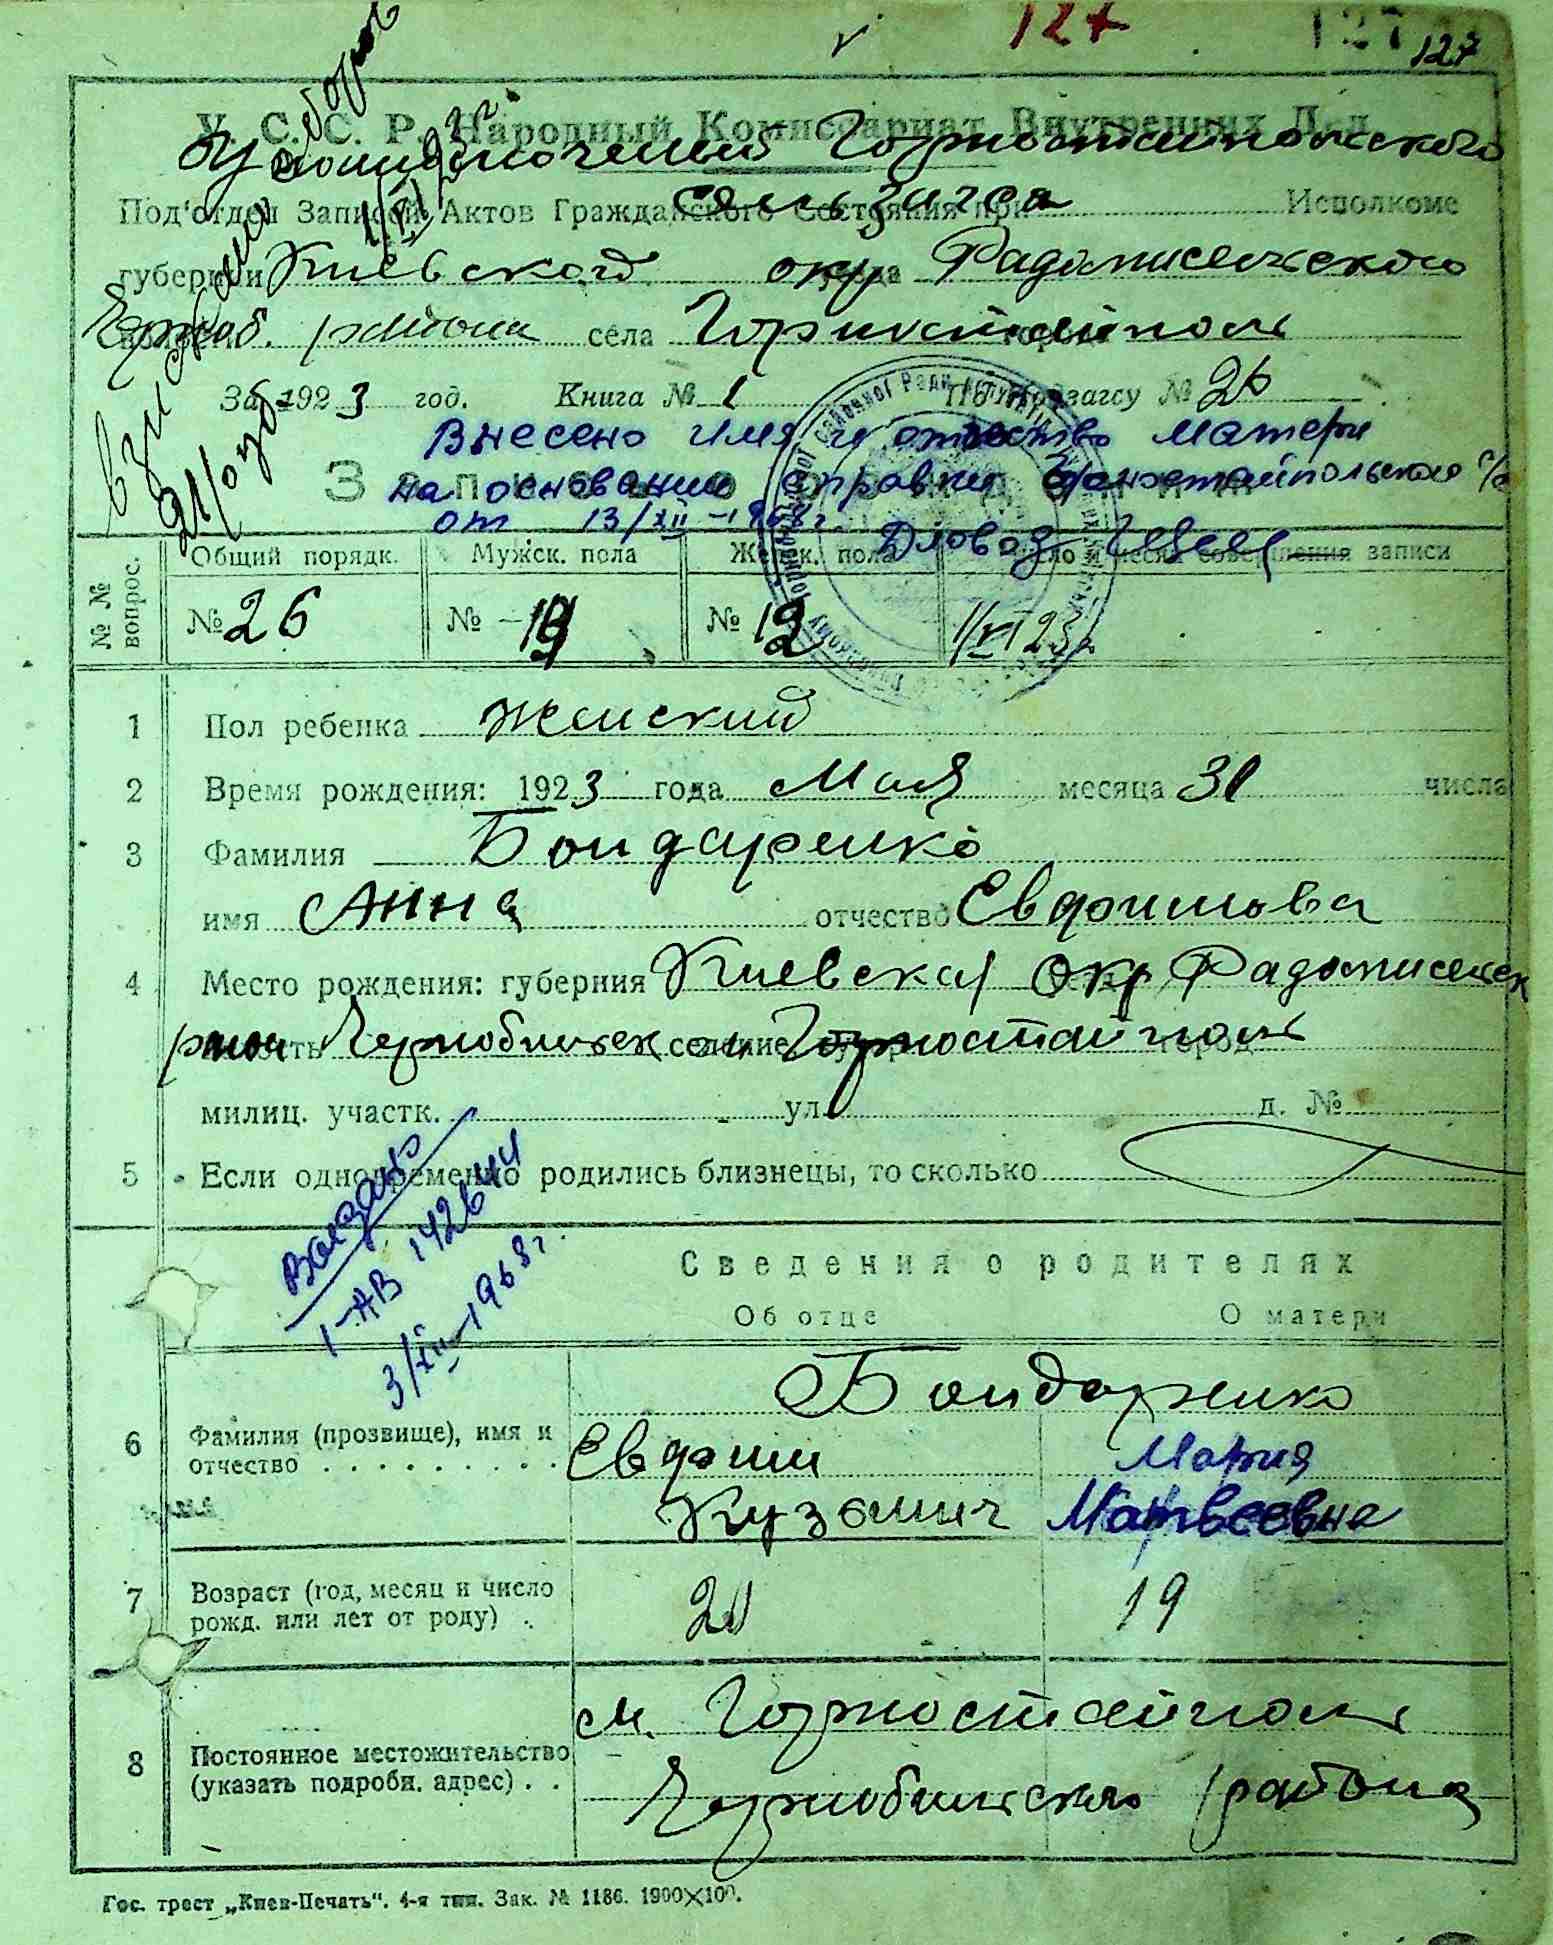 127 127 127
У. С. С. Р. Народный Комиссариат Внутренних Дел
Уполномоченный Горностайпольского
сельзагса
Под'отдел Записей Актов Гражданского Состояния при Исполкоме
губернии Киевского окр Радомисельского
Черноб. района села Горностайполь
За 1923 год. Книга № 1 По Подзагсу № 26
Внесено имя и отчество матери
Запись о рождении
на основании справки Горностайпольского с/с
от 13/XII-1968 г.
№№ вопрос.
Общий порядк. Мужск. пола Женск. пола Число и месяц совершения записи
№ 26 № № 12 1/VI 23 г
1 Пол ребенка Женский
2 Время рождения: 1923 года Мая месяца 31 числа
3 Фамилия Бондаренко
имя Анна отчество Евдокимова
4 Место рождения: губерния Киевская Окр Радомисельск
район Чернобильск селение Горностайполь город
милиц. участк. ул. д. №
5 Если одновременно родились близнецы, то сколько
Выдано
1-АВ 142644
3/XII-1968 г.
Сведения о родителях
Об отце О матери
Бондаренко
6 Фамилия (прозвище), имя и отчество
Евдоким Мария
Кузьмич Матвеевна
7 Возраст (год, месяц и число рожд. или лет от роду) 20 19
8 Постоянное местожительство (указать подробн. адрес)
м. Горностайполь
Чернобильского района
Гос. трест „Киев-Печать". 4-я тип. Зак. № 1186. 1900×100.